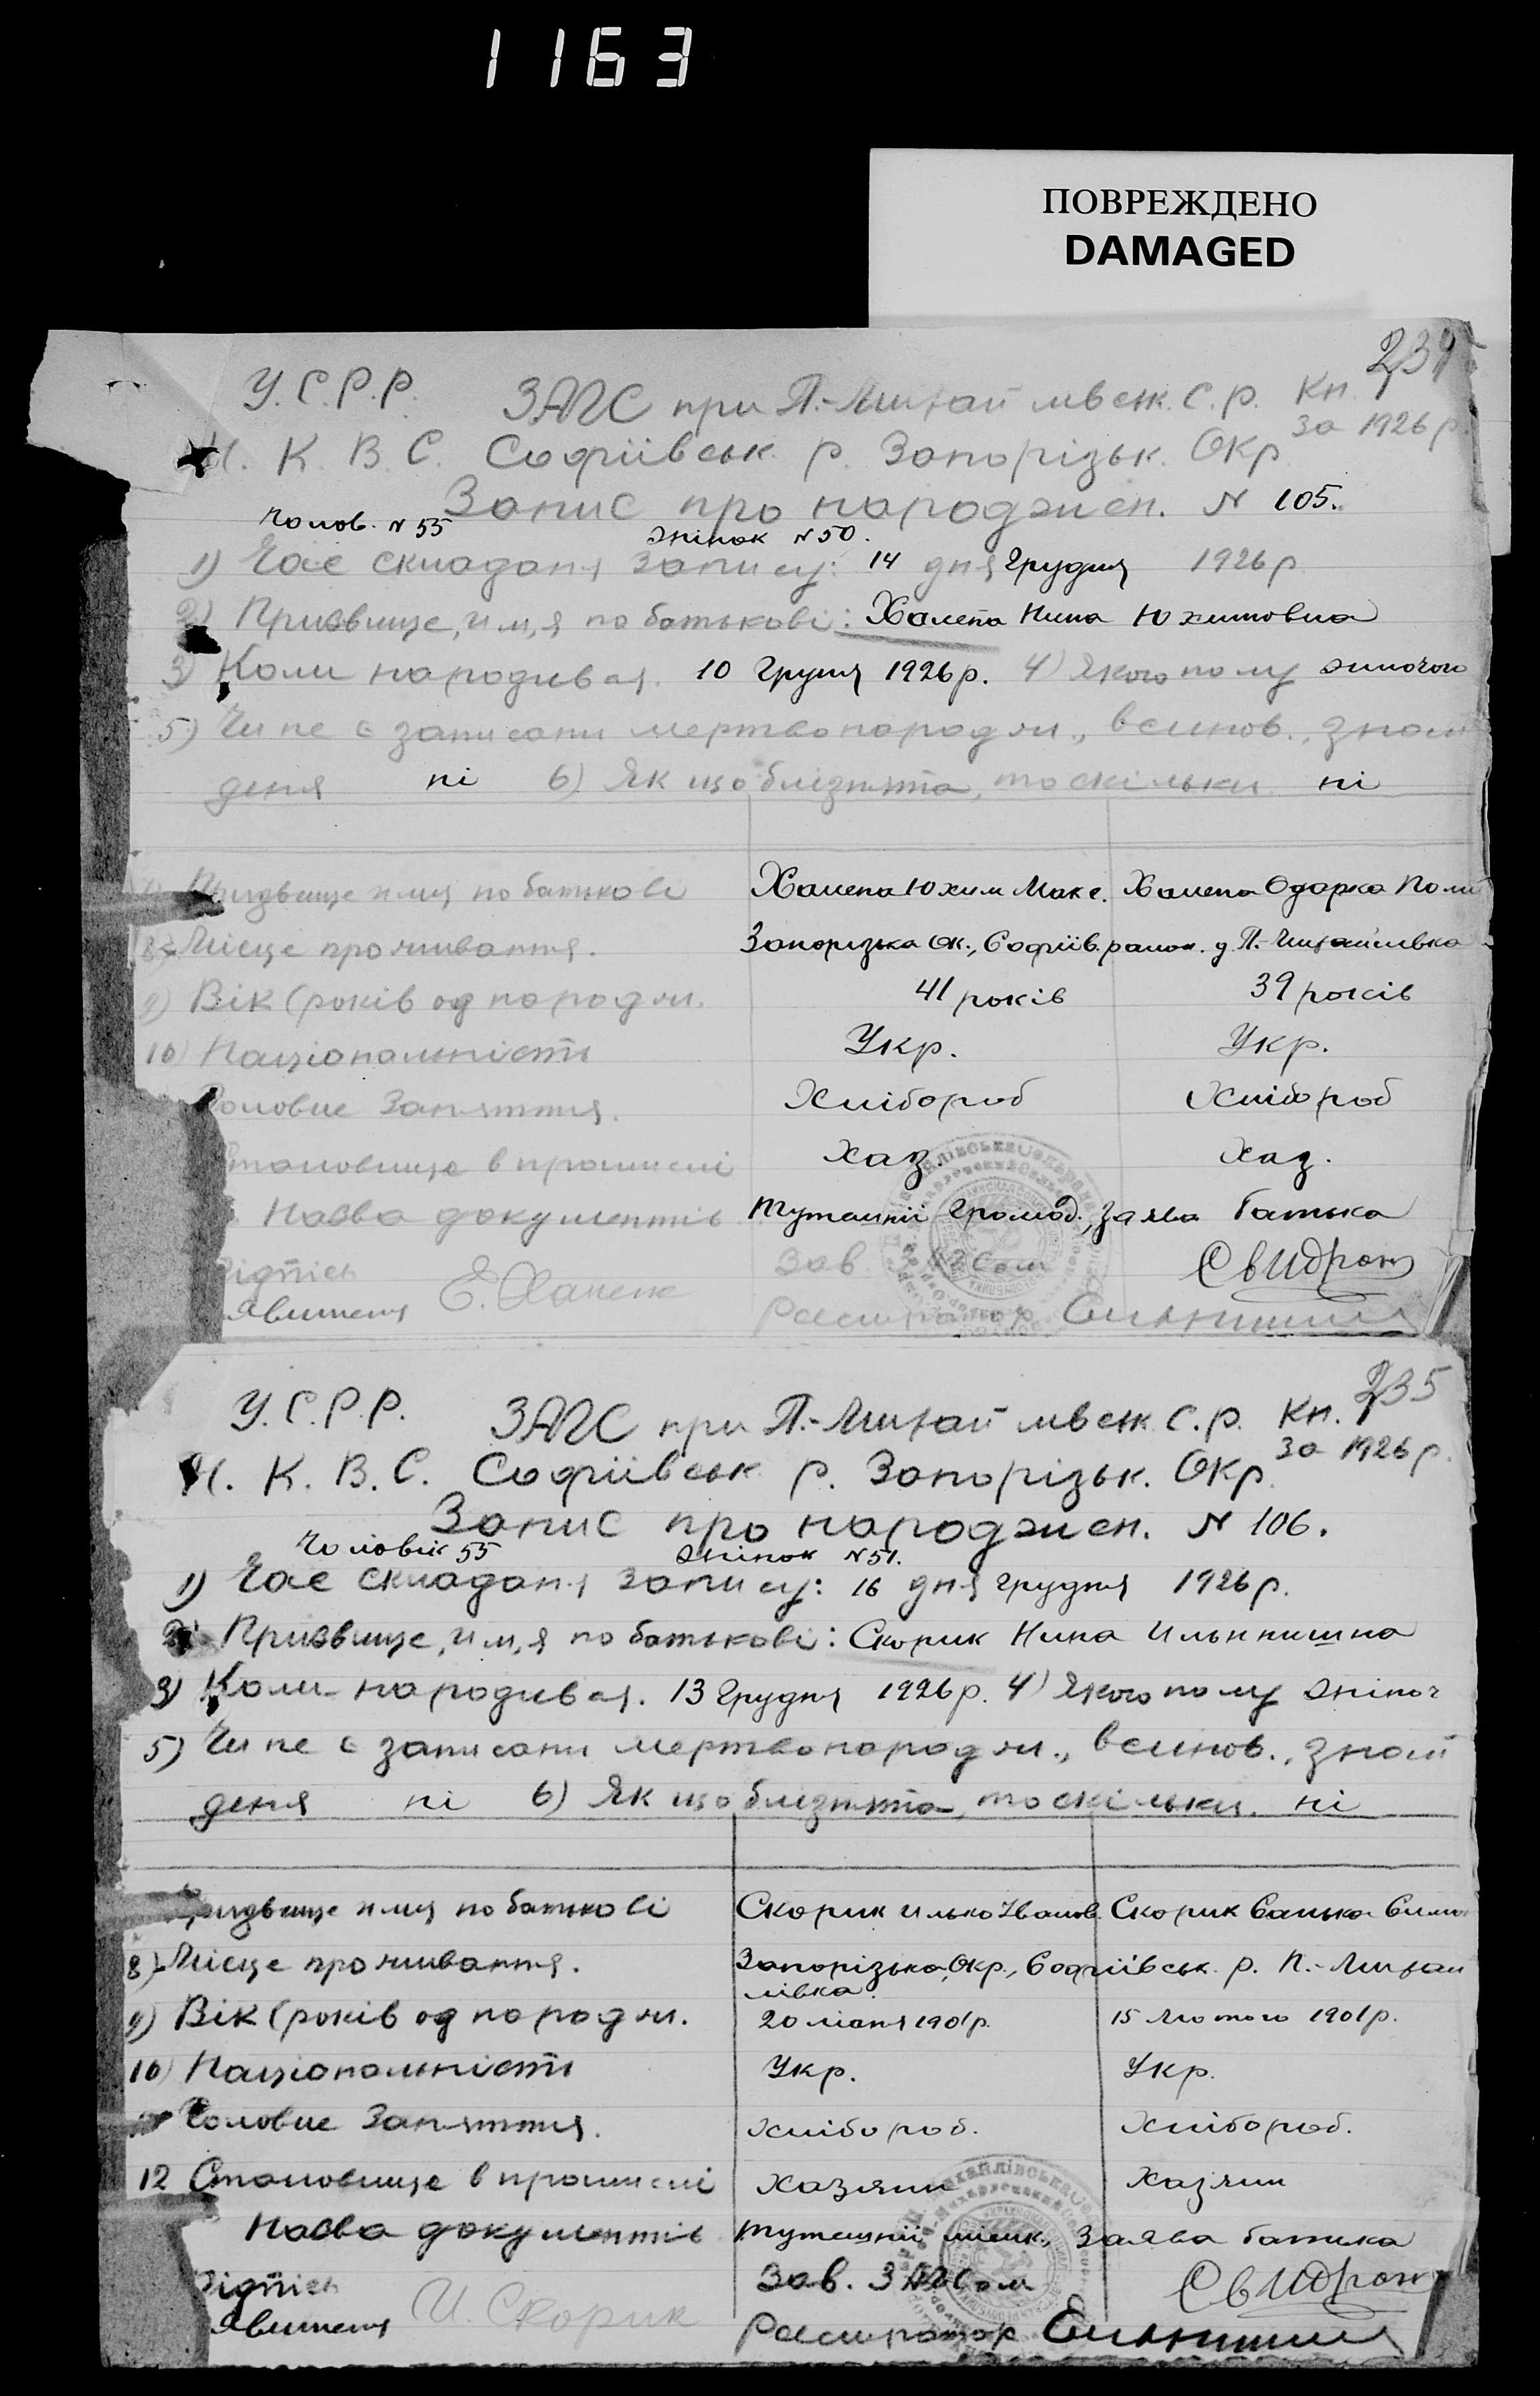 1163
ПОВРЕЖДЕНО
DAMAGED
У.С.Р.Р. ЗАГС при П.-Михайлівськ. С.р. Кн.
За 1926 р.
Н. К. В. С. Софіївськ. р. Запорізьк. Окр
Запис про народжен. N 105.
Чолов. N 55 Жінок N 50.
1) Час складаня запису: 14 дня Грудня 1926 р
2) Призвище, им,я по батькові: Халепа Нина Юхимовна
3) Коли народився. 10 Грудня 1926 р. 4) Якого полу
5) Чи не є записани мертвонародж., всинов., знай
деня ні 6) Як що близнята, то скільки ні
Призвище имя по батькові Халепа Юхим Макс. Халепа Одарка
8) Місце проживання. Запорізька Ок., Софіїв. район. П.-Михайлівка
9) Вік (років од народж. 41 років 39 років
10) Національність Укр. Укр.
Головне Заняття. Хлібороб Хлібороб
Становище в промислі Хаз. Хаз.
Назва документів Тутешній Громад., Заява Батька
Підпісь Зав. ЗАГСом
Явителя Е. Халепа Регистратор
235
У.С.Р.Р. ЗАГС при П.-Михайлівськ. С.р. Кн.
За 1926 р.
Н. К. В. С. Софіївськ р. Запорізьк. Окр.
Запис про народжен. N 106.
Чоловік 55 Жінок N 51.
1) Час складаня запису: 16 дня грудня 1926 р.
2) Призвище, им,я по батькові: Скорик Нина Ильинишна
3) Коли народився. 13 Грудня 1926 р. 4) Якого полу жіноч
5) Чи не є записани мертвонародж., всинов., знай
деня ні 6) Як що близнята, то скільки ні
Призвище имя по батькові Скорик Илько Іванов. Скорик Санька
8) Місце проживання. Запорізька Окр., Софіївськ. р. П.-Михай
лівка.
9) Вік (років од народж. 1901 р. 15 Лютого 1901 р.
10) Національність Укр. Укр.
Головне Заняття. Хлібороб. Хлібороб.
12 Становище в промислі Хазяин Хазяин
Назва документів Тутешній Заява батька
Підпісь Зав. ЗАГСом
Явителя И. Скорик Регистратор